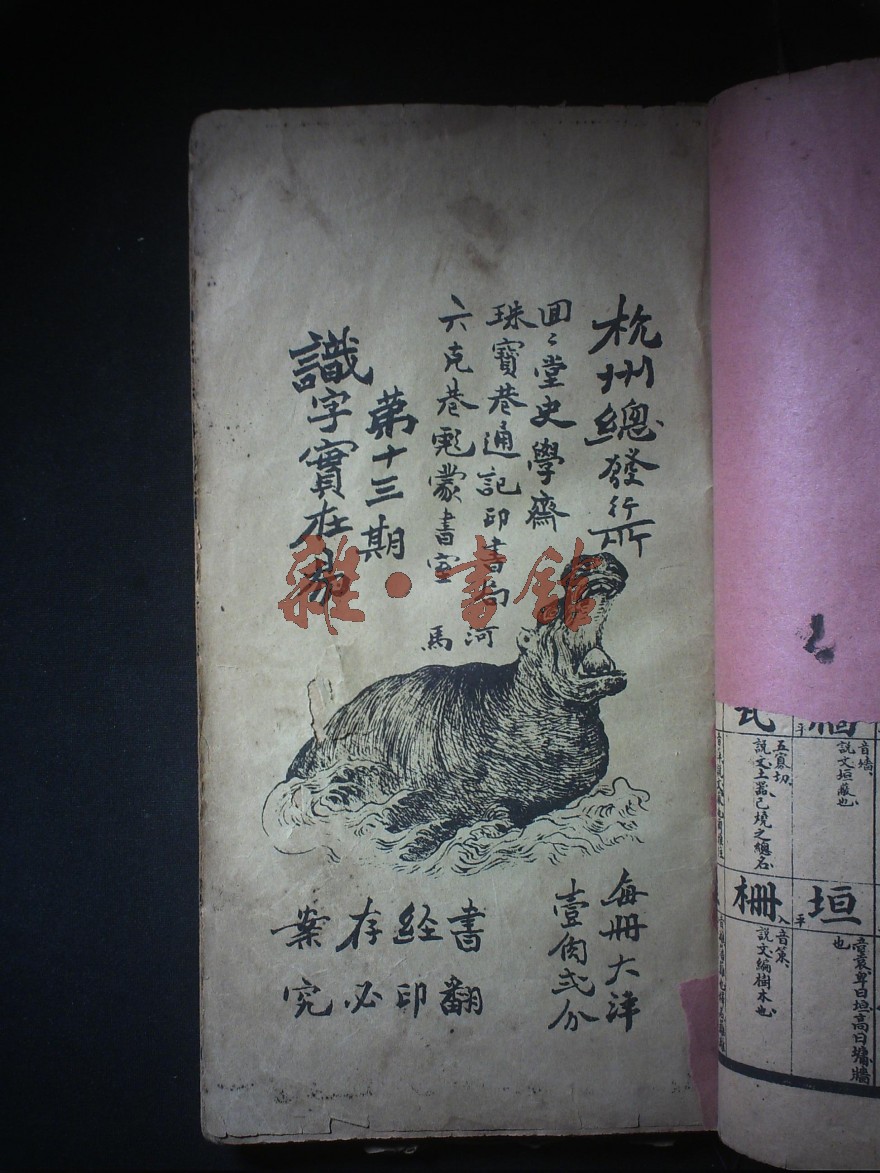 杭州總發行所
回〻堂史學齋
珠寶巷通記印書局
六克巷彪蒙書室
第十三期
識字實在易
河馬
每冊大洋
壹角弍分
書經存案
翻印必究
雜·書館
音墻、
說文垣蔽也
五寡切、
說文土器已燒之總名
垣
平
音袁卑曰垣高曰墉牆
也
柵
入
音策、
說文編樹木也